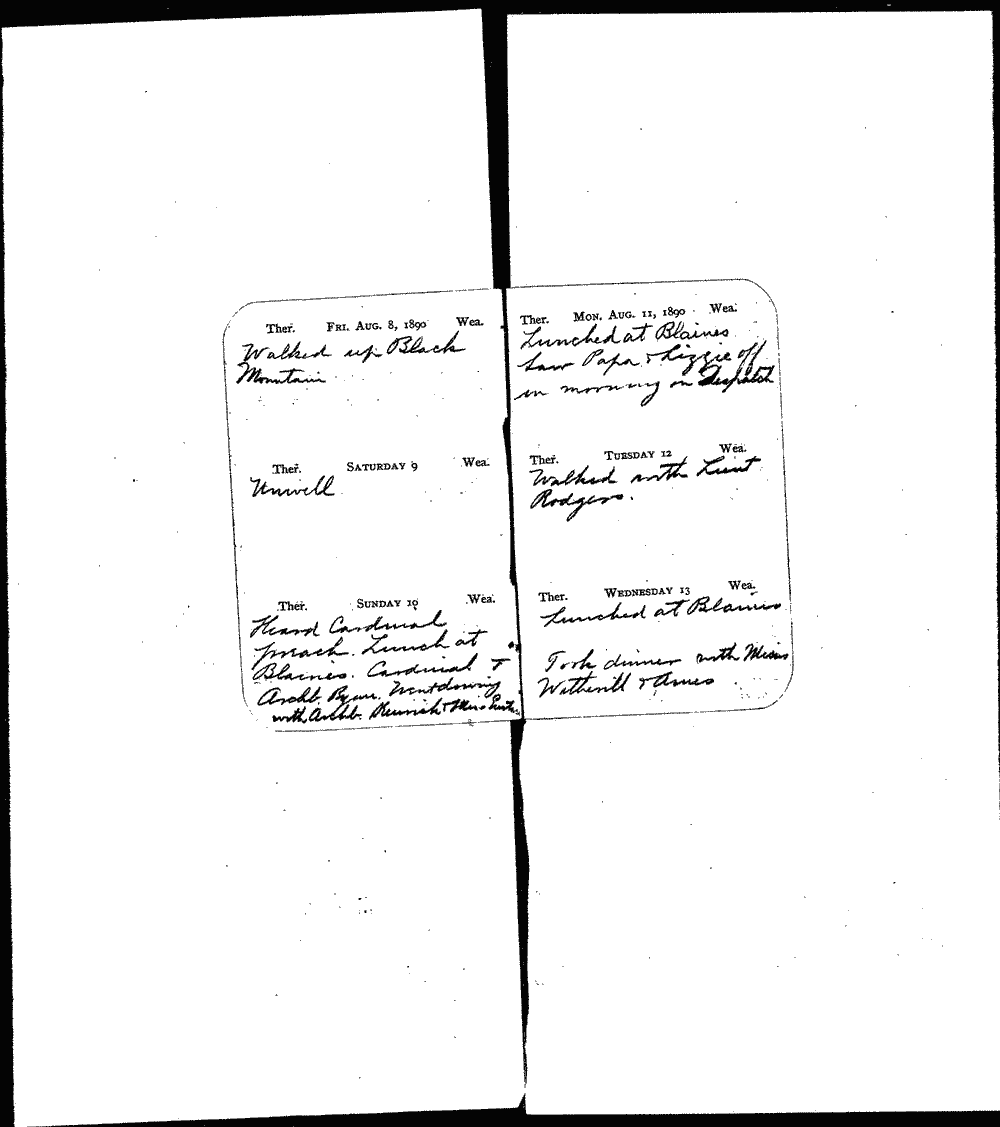 Ther. FRI. AUG. 8, 1890 Wea.
Walked up Black
Mountain
Ther. SATURDAY 9 Wea.
Unwell
Ther. SUNDAY 10 Wea.
Heard Cardinal
preach. Lunch at
Blaines. Cardinal &
Archb. Ryan. Went driving
with Archb. &
Ther. MON. AUG. 11, 1890 Wea.
Lunched at Blaines
Saw Papa & Lizzie off
in morning on Despatch
Ther. TUESDAY 12 Wea.
Walked with Lieut
Rodgers.
Ther. WEDNESDAY 13 Wea.
Lunched at Blaines
Took dinner with Misses
Witherill & Ames